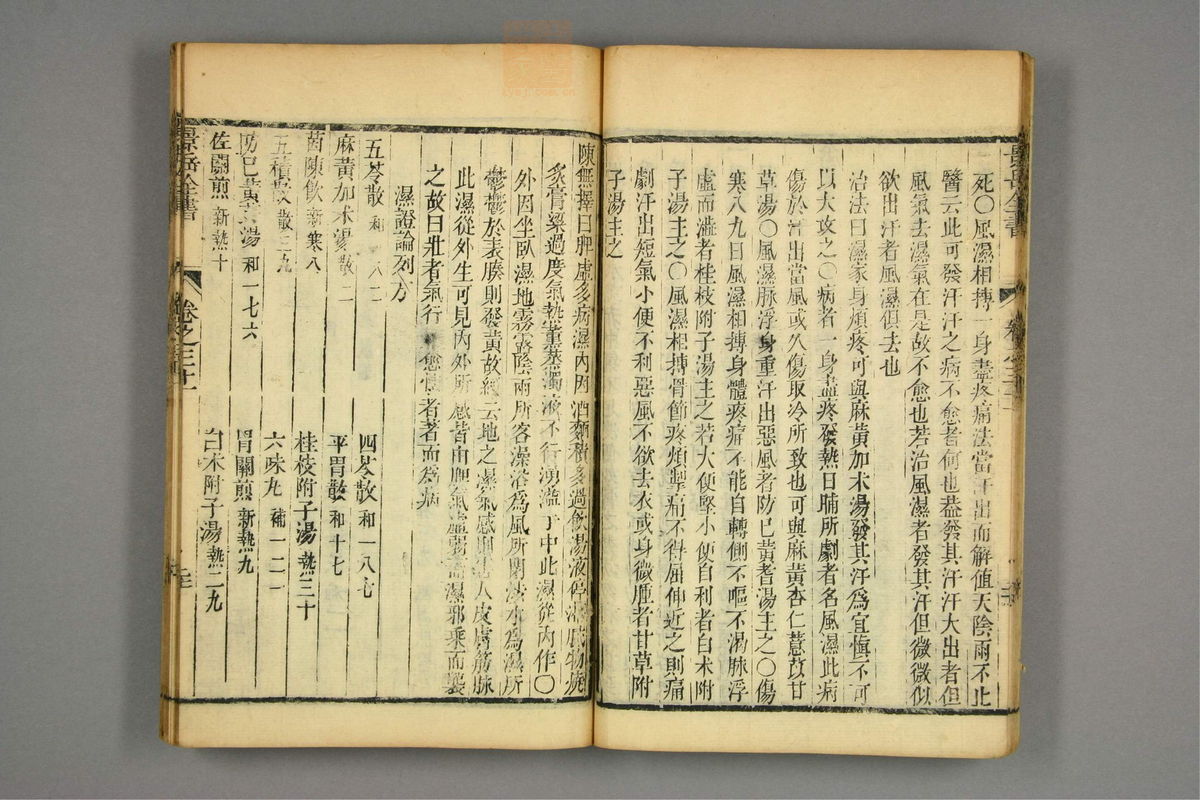 死〇風濕相搏一身盡疼痛法當汗出而解值天陰雨不止
醫云此可發汗汗之病不愈者何也蓋發其汗汗大出者但
風氣去濕氣在是故不愈也若治風濕者發其汗但微微似
欲出汗者風濕俱去也
治法曰濕家身煩疼可與麻黃加朮湯發其汗為宜慎不可
以火攻之〇病者一身盡疼發熱日晡所劇者名風濕此病
傷於汗出當風或久傷取冷所致也可與麻黃杏仁薏苡甘
草湯〇風濕脉浮身重汗出惡風者防己黃耆湯主之〇傷
寒八九日風濕相搏身體疼痛不能自轉側不嘔不渴脉浮
虛而濇者桂枝附子湯主之若大便堅小便自利者白朮附
子湯主之〇風濕相搏骨節疼煩掣痛不得屈伸近之則痛
劇汗出短氣小便不利惡風不欲去衣或身微腫者甘草附
子湯主之
陳無擇曰脾虛多病濕內因酒麵積多過飲湯液停滯膩物燒
炙膏粱過度氣熱薰蒸濁液不行湧溢于中此濕從內作〇
外因坐臥濕地霧露陰雨所客澡浴為風所閉涉水為濕所
鬱鬱於表腠則發黃故經云地之濕氣感則害人皮膚筋脉
此濕從外生可見內外所感皆由脾氣虛弱而濕邪乘而襲
之故曰壯者氣行則愈怯者著而為病
濕證論列方
五苓散 和一八二
四苓散 和一八七
麻黃加朮湯 散二
平胃散 和十七
茵陳飲 新寒八
桂枝附子湯 熱三十
五積散 散三九
六味丸 補一二一
防己黃耆湯 和一七六
胃關煎 新熱九
佐關煎 新熱十
白朮附子湯 熱二九
景岳全書
卷之三十一
景岳全書